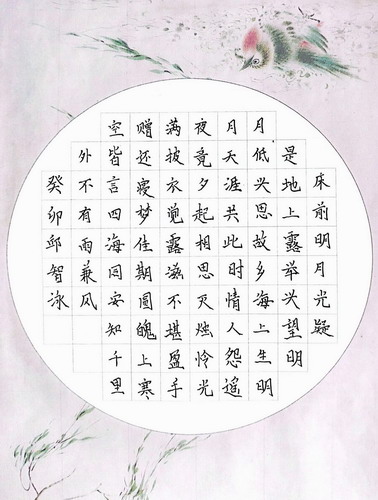 床前明月光疑
是地上露举兴望明
月低兴思故乡海上生明
月天涯共此时情人怨遥
夜竟夕起相思灭烛怜光
满披衣觉露滋不堪盈手
赠还寝梦佳期圆魄上寒
空皆言四海同安知千里
外不有雨兼风
癸卯邱智泳